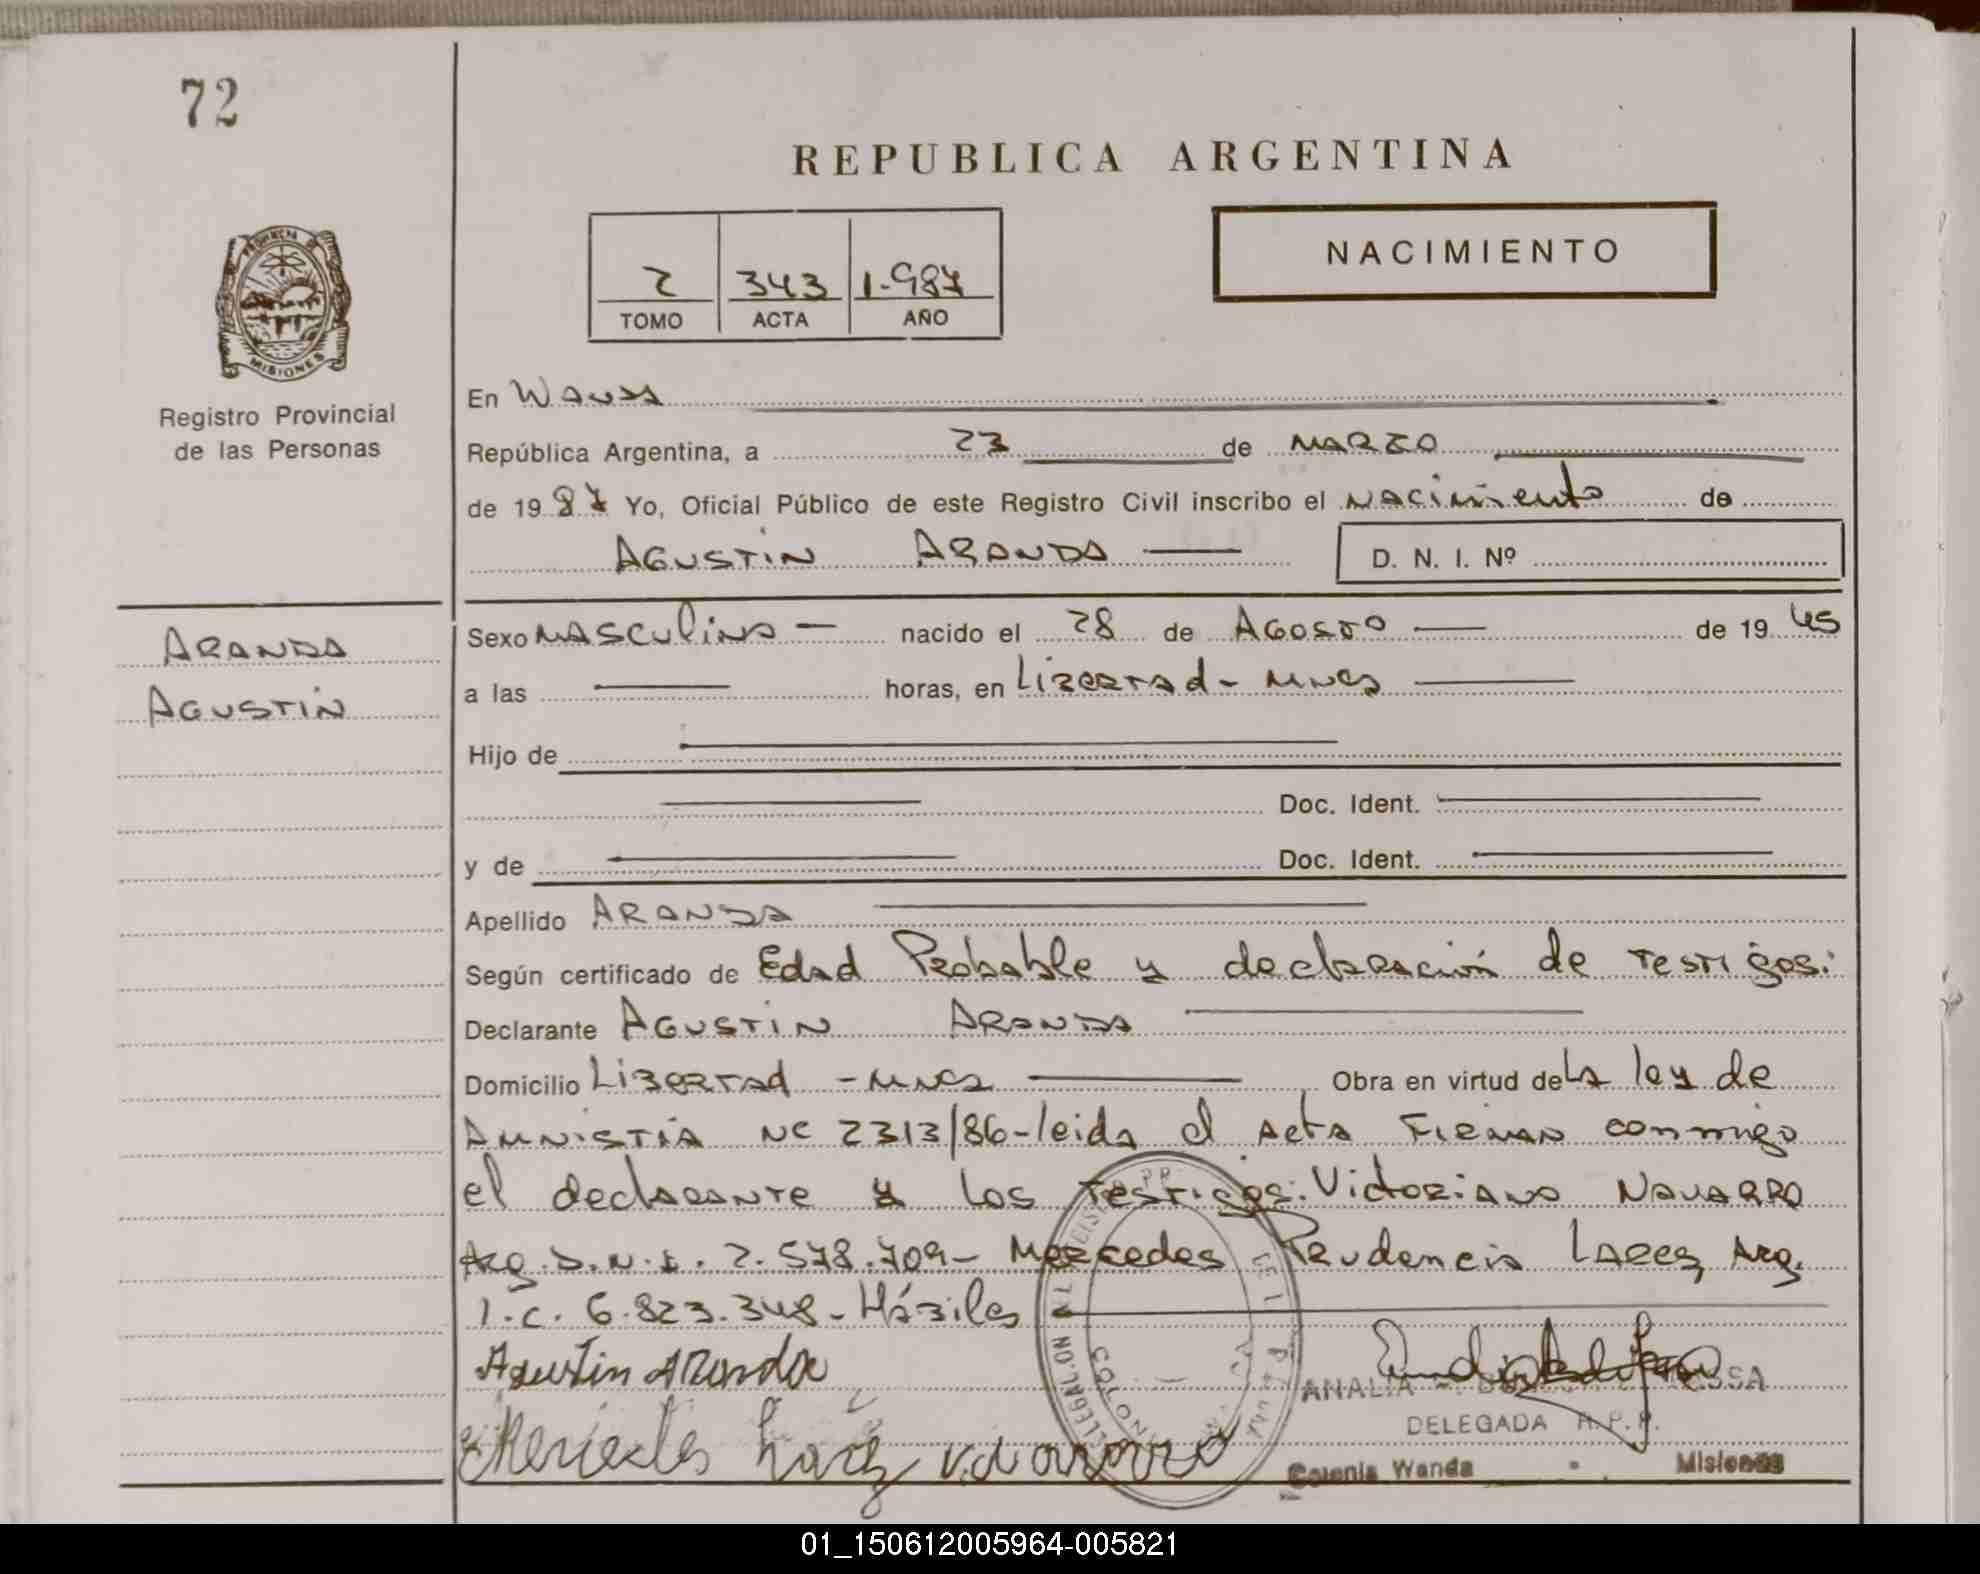 72
REPUBLICA ARGENTINA
2 343 1.987
TOMO ACTA AÑO
NACIMIENTO
PROVINCIA DE
MISIONES
Registro Provincial
de las Personas
En Wanda
República Argentina, a 23 de MARZO
de 1987 Yo, Oficial Público de este Registro Civil inscribo el nacimiento de
AGUSTIN ARANDA D. N. I. Nº
ARANDA
AGUSTIN
Sexo MASCULINO — nacido el 28 de AGOSTO — de 19 45
a las — horas, en Libertad - Mnes —
Hijo de
Doc. Ident.
y de Doc. Ident.
Apellido ARANDA
Según certificado de Edad Probable y declaración de testigos.
Declarante AGUSTIN ARANDA
Domicilio Libertad - Mnes — Obra en virtud de la ley de
AMNISTIA Nº 2313/86 - leida el acta firman conmigo
el declarante y los testigos: Victoriano NAVARRO
Arg. D.N.I. 7.578.709 - Mercedes Prudencia Larez, Arg.
L.C. 6.823.348 - Hábiles
Agustin Aranda
Mercedes Larez
ANALIA
DELEGADA R.P.P.
Colonia Wanda Misiones
01_150612005964-005821